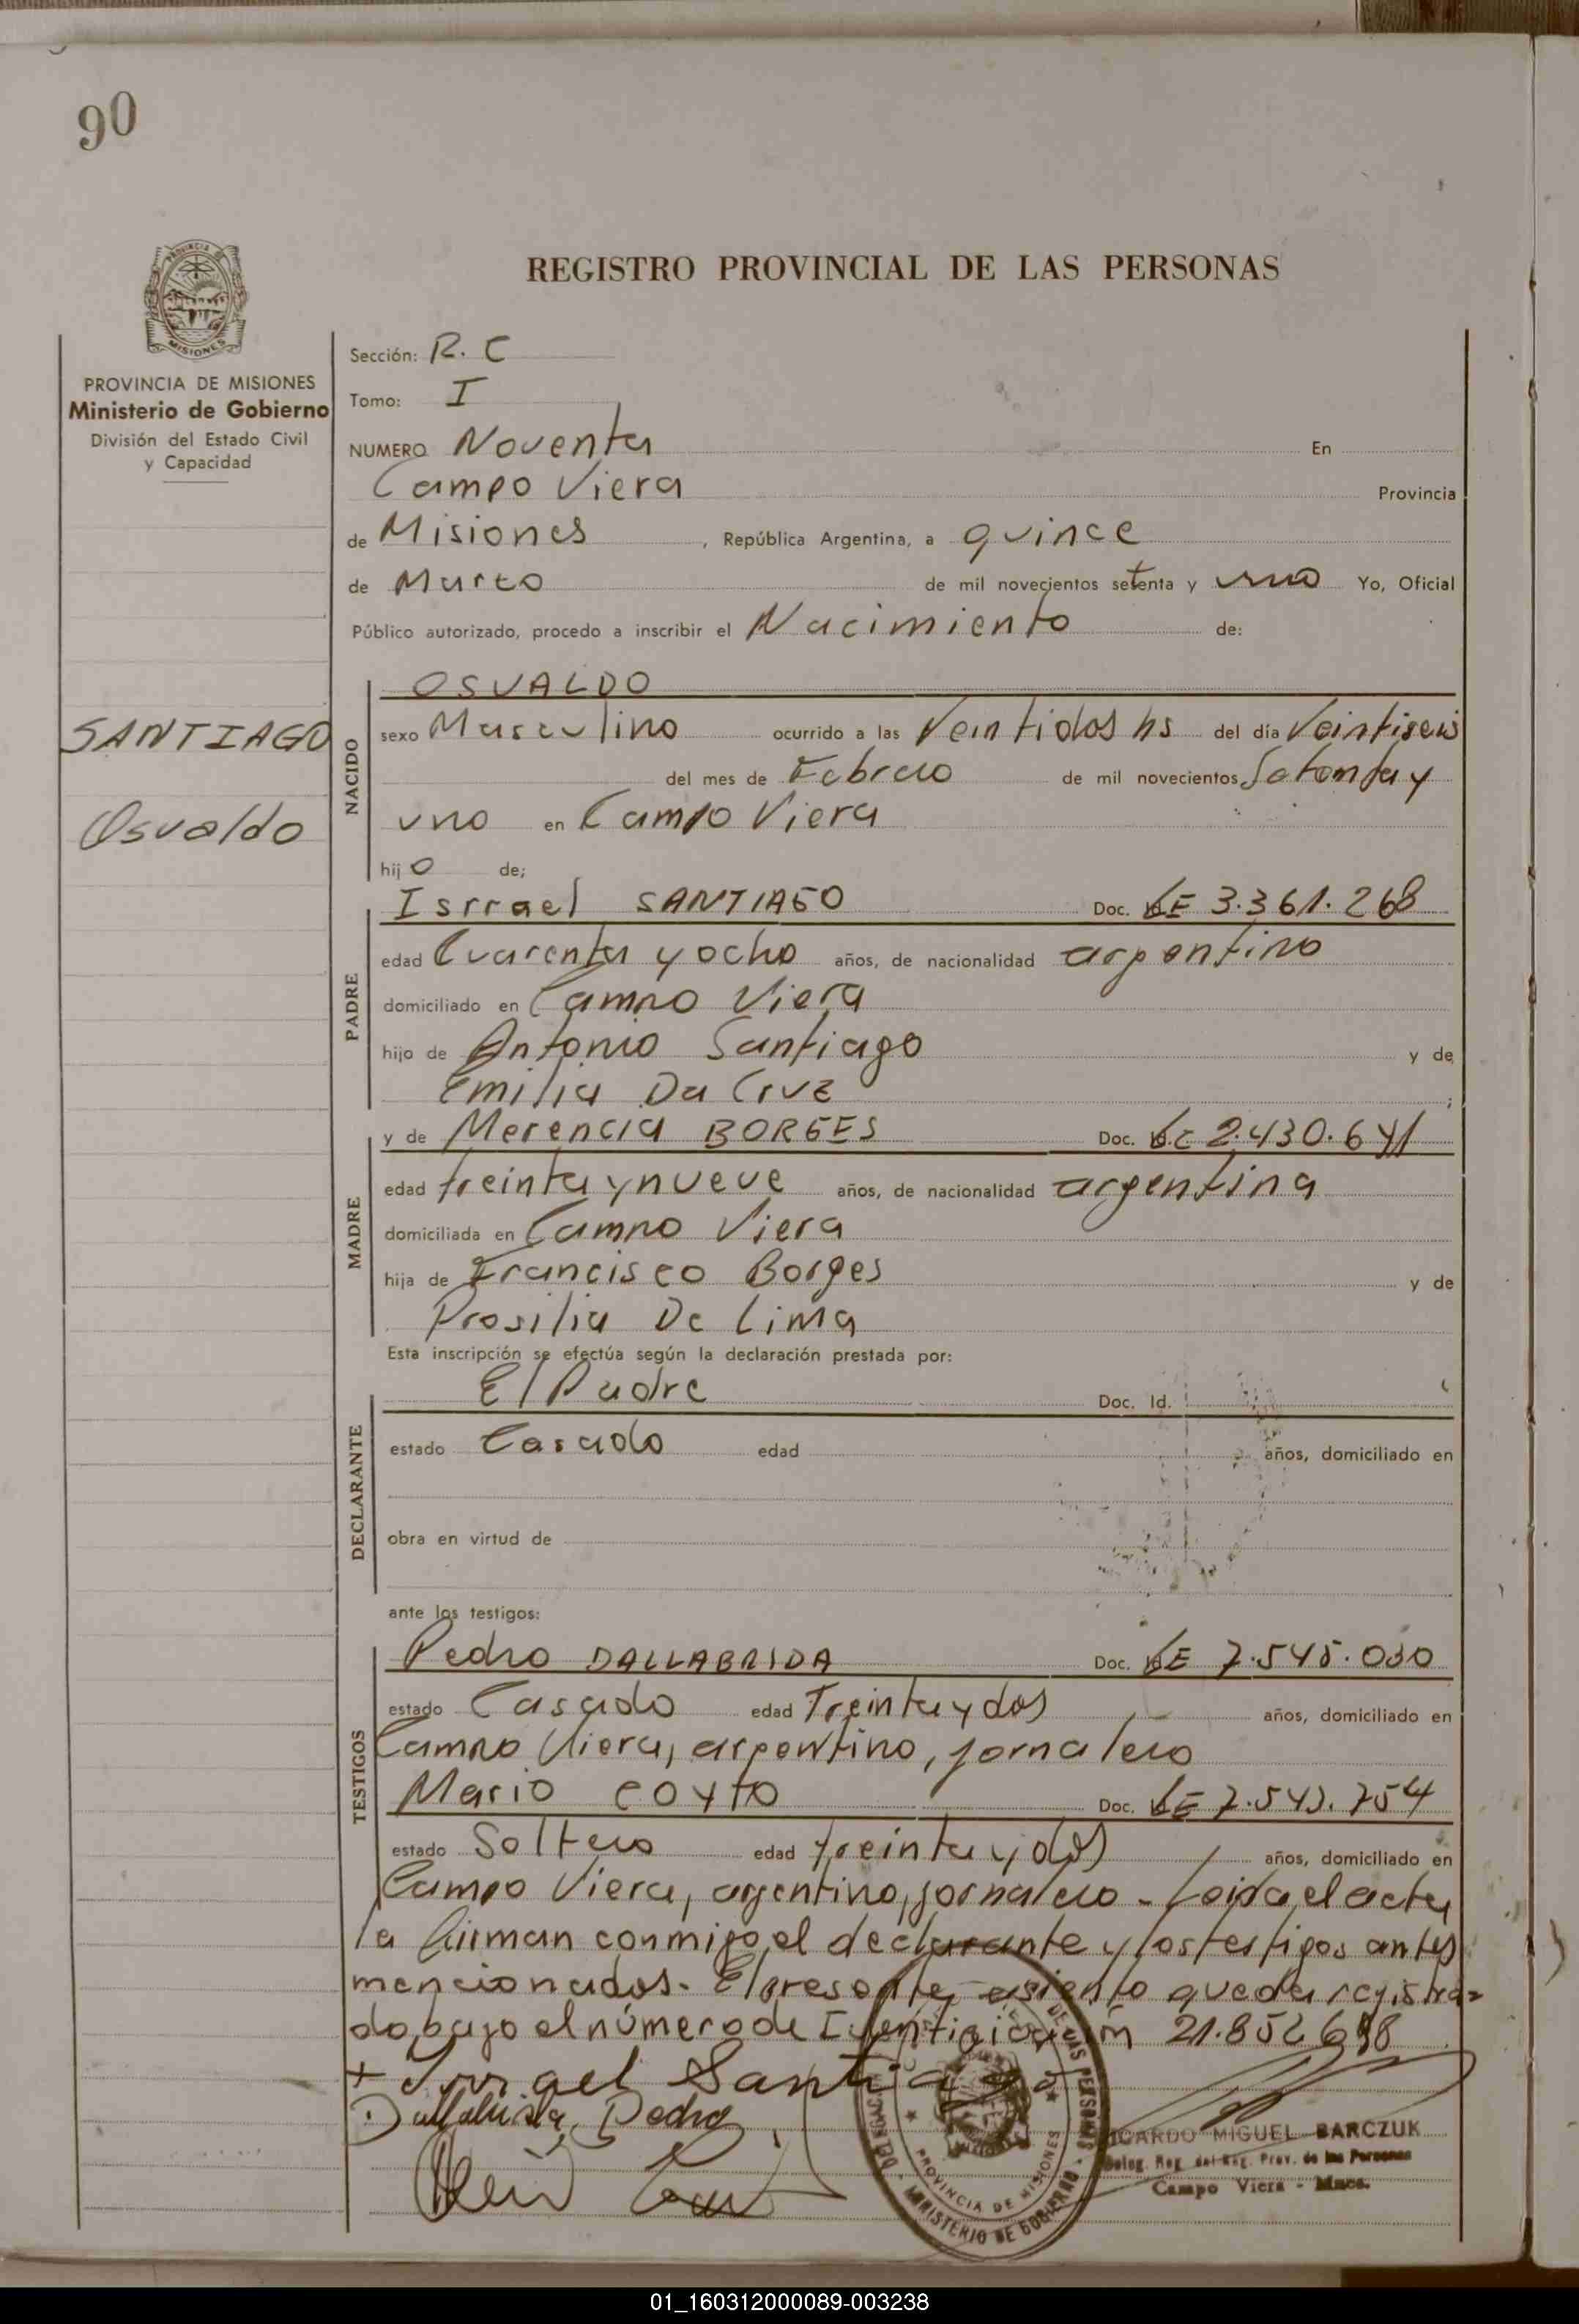 90
PROVINCIA
MISIONES
PROVINCIA DE MISIONES
Ministerio de Gobierno
División del Estado Civil
y Capacidad
SANTIAGO
Osvaldo
REGISTRO PROVINCIAL DE LAS PERSONAS
Sección: R. C
Tomo: I
NUMERO Noventa En
Campo Viera Provincia
de Misiones, República Argentina, a quince
de Marzo de mil novecientos setenta y uno Yo, Oficial
Público autorizado, procedo a inscribir el Nacimiento de:
NACIDO
OSVALDO
sexo Masculino ocurrido a las Veintidos hs del día Veintiseis
del mes de Febrero de mil novecientos Setenta y
uno en Campo Viera
hijo de;
PADRE
Isrrael SANTIAGO Doc. LE 3.361.268
edad Cuarenta y ocho años, de nacionalidad argentino
domiciliado en Campo Viera
hijo de Antonio Santiago y de
Emilia Da Cruz ;
MADRE
y de Merencia BORGES Doc. L.C 2.430.641
edad treinta y nueve años, de nacionalidad argentina
domiciliada en Campo Viera
hija de Francisco Borges y de
Prosilia De Lima
Esta inscripción se efectúa según la declaración prestada por:
DECLARANTE
El Padre Doc. Id.
estado Casado edad años, domiciliado en
obra en virtud de
ante los testigos:
TESTIGOS
Pedro DALLABRIDA Doc. LE 7.545.030
estado Casado edad Treinta y dos años, domiciliado en
Campo Viera, argentino, jornalero
Mario COYTO Doc. LE
estado Soltero edad treinta y dos años, domiciliado en
Campo Viera, argentino, jornalero - Leida el acta
la firman conmigo, el declarante y los testigos antes
mencionados. El presente asiento queda registra=
do bajo el número de Identificación 21.852.698
+ Isrrael Santiago
Dallabrida, Pedro
DE LAS PERSONAS
PROVINCIA DE MISIONES
MINISTERIO DE GOBIERNO
RICARDO MIGUEL BARCZUK
Deleg. Reg. del Reg. Prov. de las Personas
Campo Viera - Mnes.
01_160312000089-003238